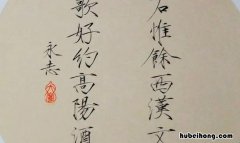 惟餘西漢文
歌好約高陽酒
永志
www.hubeihong.com